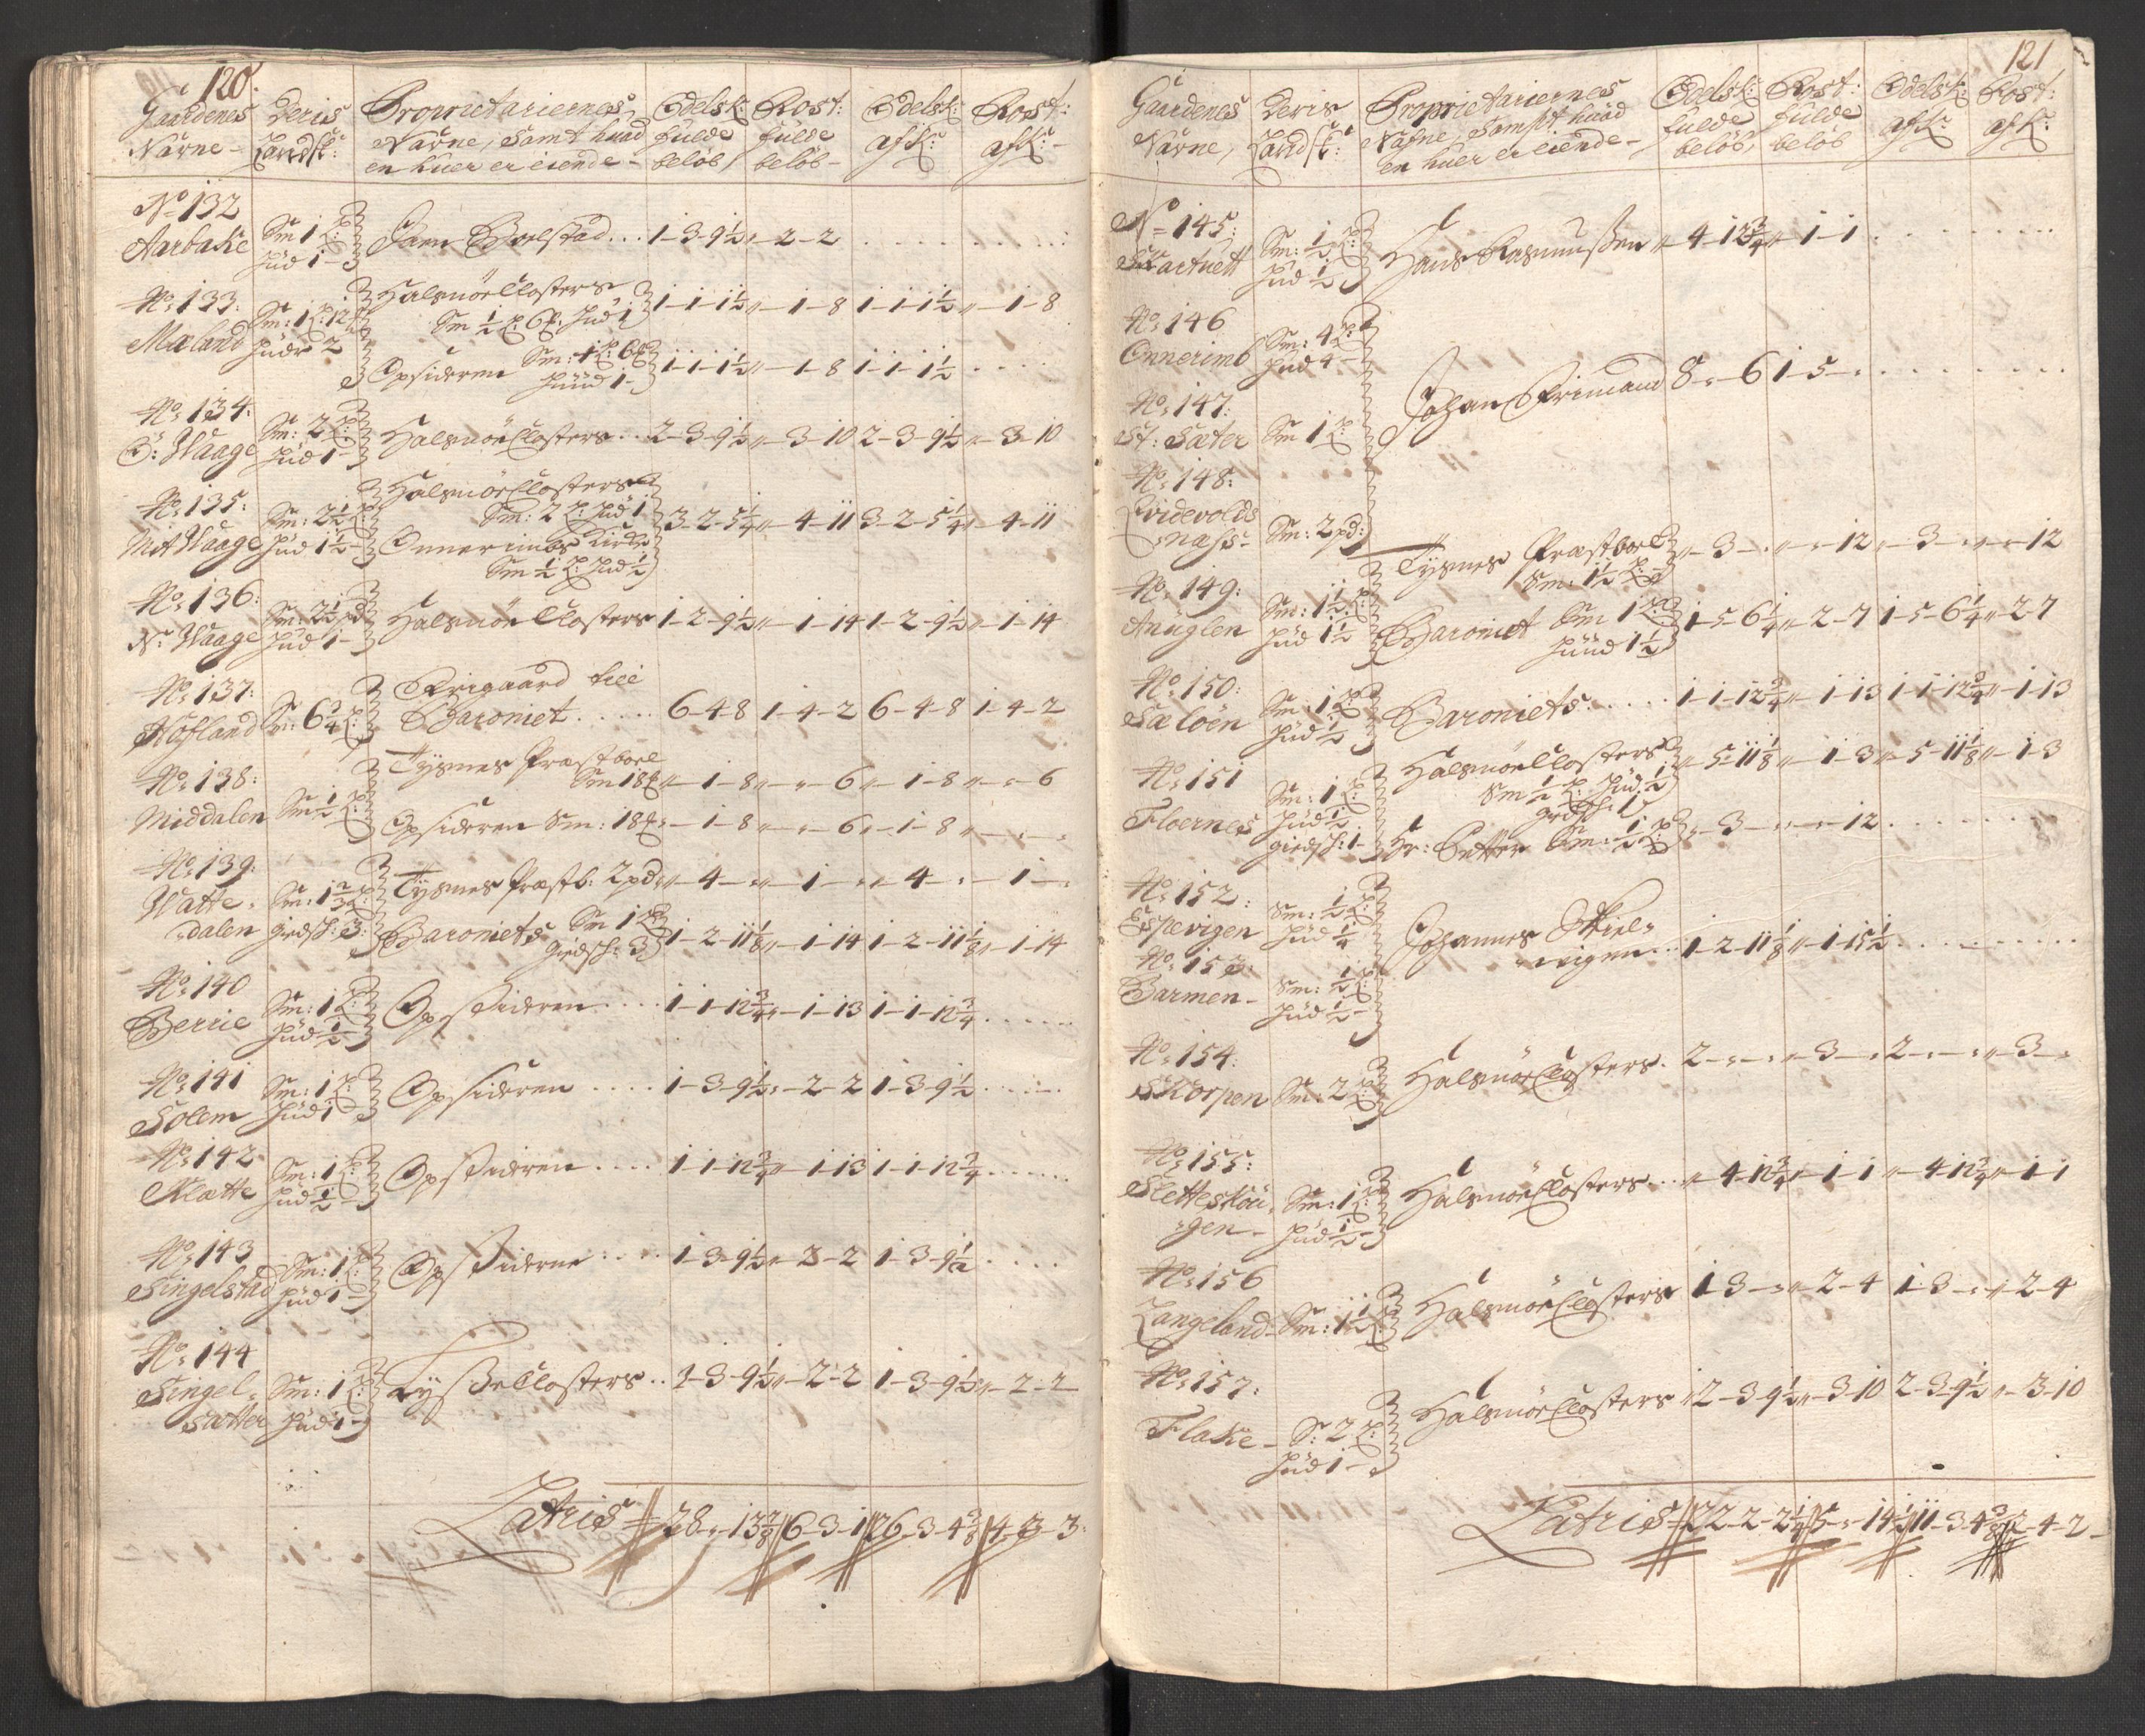 120.
Gaardenes Deris Proprietariernes Odelsk: Rost: Odelsk: Rost:
Navne - Landsk: Navne, samt huad fulde fulde afk: afk:
en huer er eiende - beløb beløb -
No 132
Aarbake Sm 1 Boelstad ... 1-3-9½ „ 2-2
Hud 1 -
No: 133: Halsnöe Closters
Mæland Sm: 1 12 Sm ½ 6 Hud 1 1-1-1½ „ -1-8 1-1-1½ „ -1-8
Hudr 2 Opsideren Sm: 6 1-1-1½ „ -1-8 1-1-1½ . . . .
Huud 1 -
No: 134:
Ö: Waage Sm: 2 Halsnöe Closters .. 2-3-9½ „ -3-10 2-3-9½ „ -3-10
Hud 1 -
No: 135: Halsnöe Closters
Mit Waage Sm: 2½ Sm: 2 Hud 1 3-2-5¼ „ -4-11 3-2-5¼ „ -4-11
Hud 1½ - Onnerimbs Kirke
Sm ½ Hud ½
No: 136:
N: Waage Sm: 2½ pd Halsnöe Closters 1-2-9½ „ -1-14 1-2-9½ „ -1-14
Hud 1 -
No: 137: Frigaard till
Hofland Sm: 6¾ Baroniet . . . . . 6-4-8 1-4-2 6-4-8 1-4-2
No: 138: Tysnes Præstboel
Sm 18 „ -1-8 „ - „ -6 „ -1-8 „ - „ -6
Middalen Sm ½ Opsideren Sm: 18 -1-8 „ - „ -6 „ -1-8
No: 139:
Watte- Sm: 1⅔ Tysnes Præstb: 2 pd „ -4 - „ -1 - „ -4 - „ -1 -
dalen giedsk: 3: Baroniets Sm 1 1-2-11⅛ „ -1-14 1-2-11⅛ „ -1-14
Giedsk: 3
No: 140
Berrie Sm: 1 Opsideren . . . . 1-1-12¾ „ -1-13 1-1-12¾ . . . .
Hud ½ -
No: 141
Solem Sm: 1 Opsideren . . . . 1-3-9½ „ -2-2 1-3-9½ . . . .
Hud 1
No: 142
Klatte Sm: 1 Opsideren . . . . 1-1-12¾ „ -1-13 1-1-12¾ . . . .
Hud ½ -
No: 143
Singelstad Sm: 1 Opsiderne . . . . 1-3-9½ „ 2-2 1-3-9½ . . . .
Hud 1 -
No: 144
Singel- Sm: 1 Lysse Closters .. 1-3-9½ „ -2-2 1-3-9½ „ -2-2
sætter Hud 1 -
Latris 28 - „ -13⅜ 6-3-1 26-3-4⅜ 4-3-3:
121
Gaardenes Deris Proprietariernes Odelsk: Rost: Odelsk: Rost:
Navne, Landsk: Nafne, Samt huad fulde fulde afk: afk:
en huer er eiende - beløb, beløb
No 145:
Skartuett Sm: ½ Hans Rasmussen „ -4-12¾ „ -1-1
Hud ½
No: 146
Onnerimb Sm: 4
Hud 4 -
Johan Frimand 8 - „ -6 1-5 - „
No: 147:
St: Sæter Sm 1
No: 148:
Qvidevolds
næss - Sm: 2 pd: Tysnes Præstboel „ -3 - „ „ - „ -12 „ -3 - „ „ - „ -12
Sm: 1½
No: 149:
Anuglen Sm: 1½ Baroniet Sm 1 1-5-6¼ „ -2-7 1-5-6¼ „ 2-7
Hud 1½ Huud 1½
No: 150:
Sæløen Sm: 1 Baroniets . . . . . 1-1-12¾ „ -1-13 1-1-12¾ „ -1-13
Hud ½
No: 151 Halsnöe Closters „ -5-11⅛ „ -1-3 „ -5-11⅛ „ -1-3
Sm: 1 Sm ½ Hud ½
Floernes Hud ½ gedsk: 1 -
giedsk: 1 - Hr: Petter Sm: ½ „ -3 - „ - „ -12
No: 152:
Espevigen Sm: ½ Johannes
Hud ¼ vigen .. 1-2-11⅛ „ -1-15½
No: 153:
Barmen - Sm: ½
Hud ½
No: 154:
Skorpen Sm: 2 Halsnöe Closters . 2 - „ - „ „ -3 - „ 2 - „ - „ „ -3 - „
No: 155:
Sletteskou- Sm: 1 Halsnöe Closters . . . „ -4-12¾ „ -1-1 „ -4-12¾ „ -1-1
gen - Hud ½ -
No: 156
Langeland - Sm: 1½ Halsnöe Closters 1-3 - „ „ -2-4 1-3 - „ „ -2-4
No: 157:
Flake - S: 2 Halsnöe Closters 2-3-9½ „ -3-10 2-3-9½ „ -3-10
Hud 1 -
Latris 22-2-2¼ 5 - „ -14½ 11-3-4⅜ 2-4-2 -